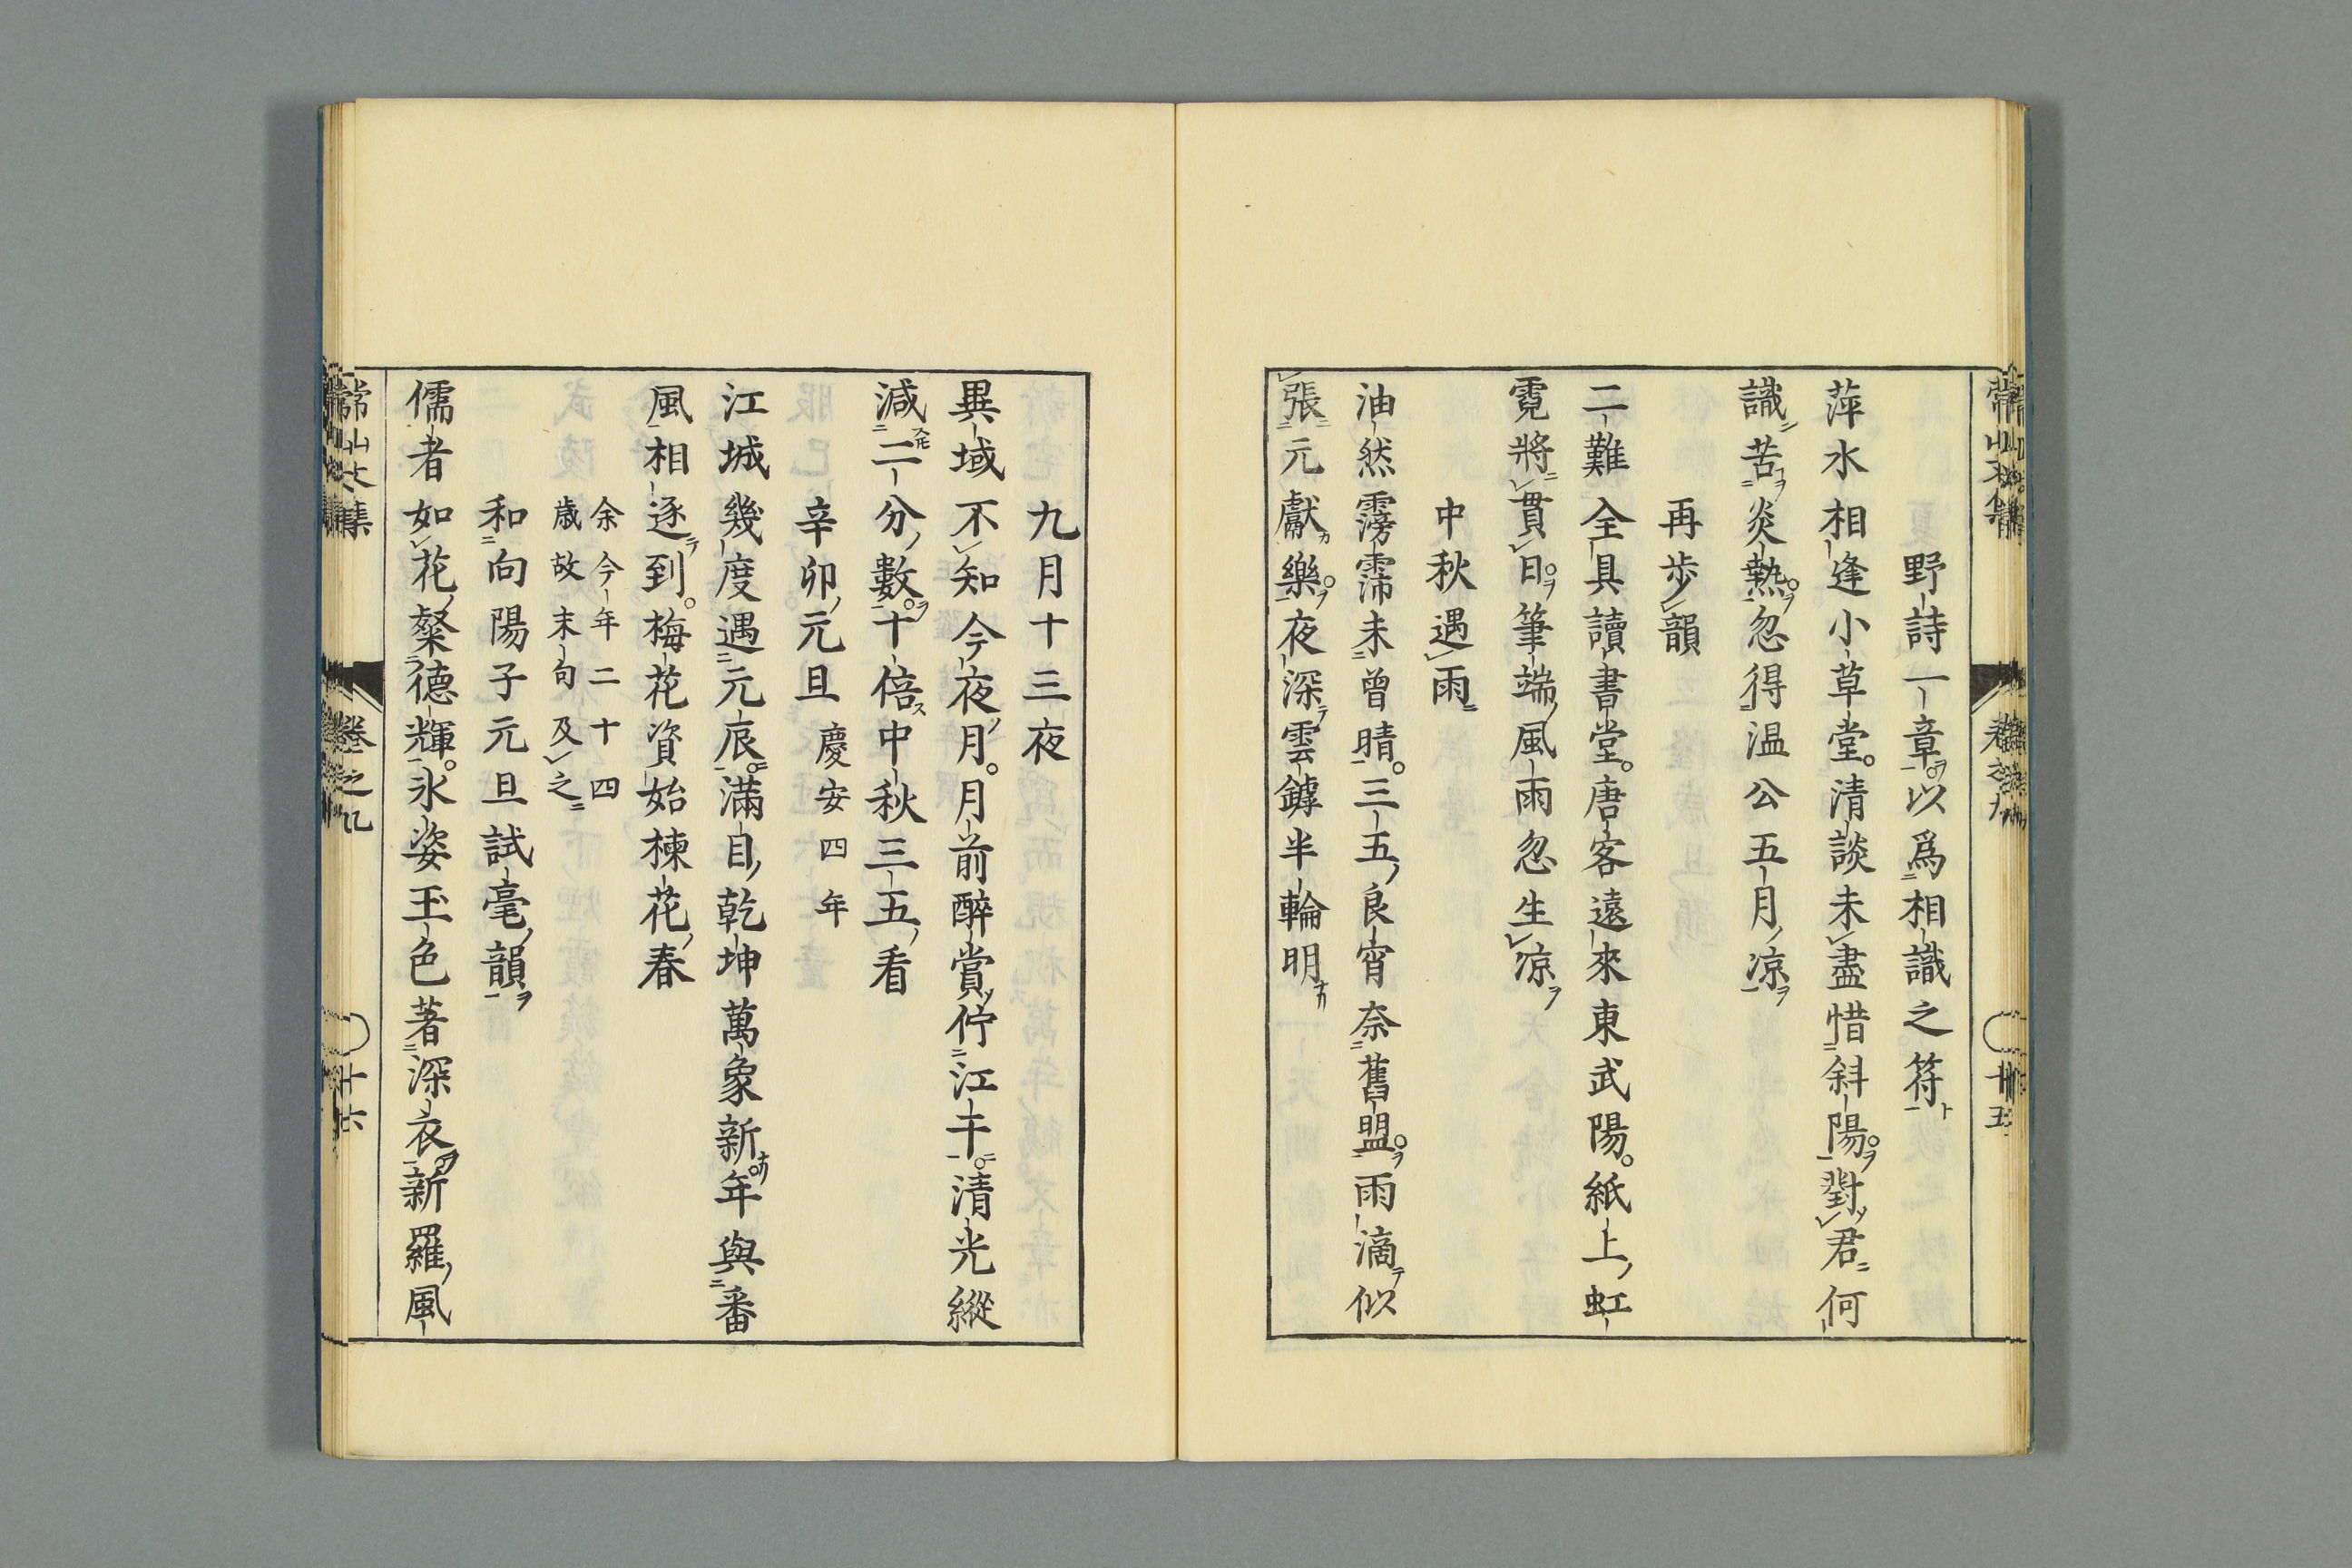 野詩一章以爲相識之符
萍水相逢小草堂。清談未盡惜斜陽。對君何
識苦炎熱。忽得温公五月凉
再歩韻
二難全具讀書堂。唐客遠來東武陽。紙上虹
霓將貫日。筆端風雨忽生凉
中秋遇雨
油然霶霈未曾晴。三五良宵奈舊盟。雨滴似
張元獻樂。夜深雲鏬半輪明
九月十三夜
異域不知今夜月。月前醉賞佇江干。清光縱
減二分數。十倍中秋三五看
辛卯元旦 慶安四年
江城幾度遇元辰。滿目乾坤萬象新。年與番
風相逐到。梅花資始楝花春
余今年二十四
歳故末句及之
和向陽子元旦試毫韻
儒者如花粲德輝。氷姿玉色著深衣。新羅風
常山文集 卷之九 十六